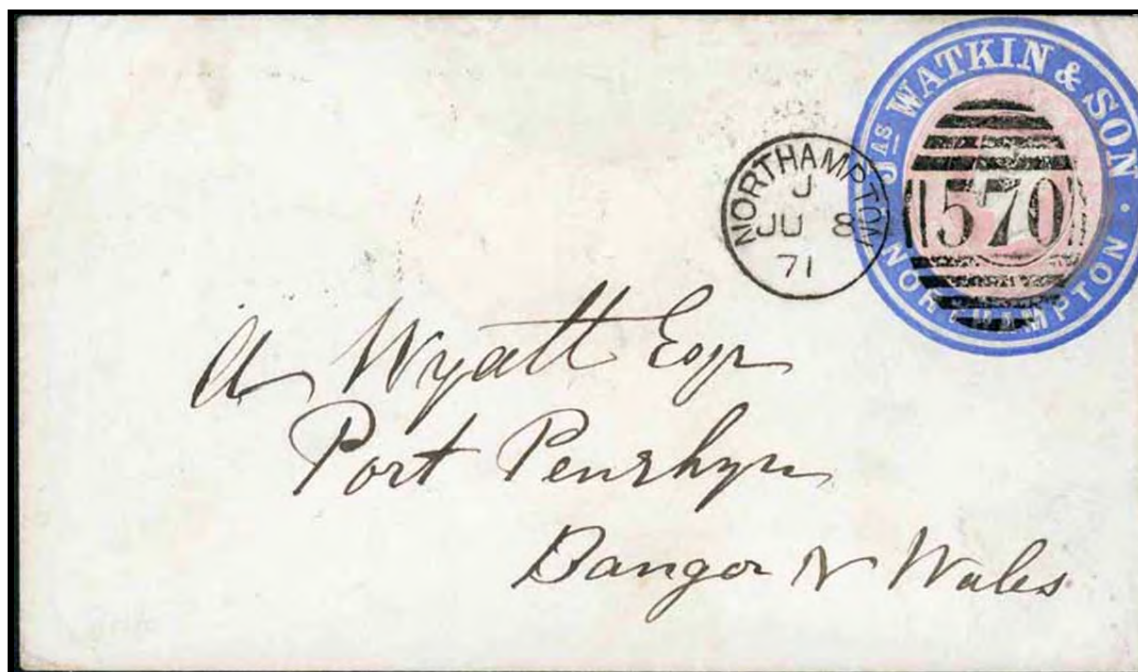 Jas WATKIN & SON
· NORTHAMPTON ·
570
NORTHAMPTON
J
JU 8
71
A Wyatt Esqr
Port Penrhyn
Bangor N Wales